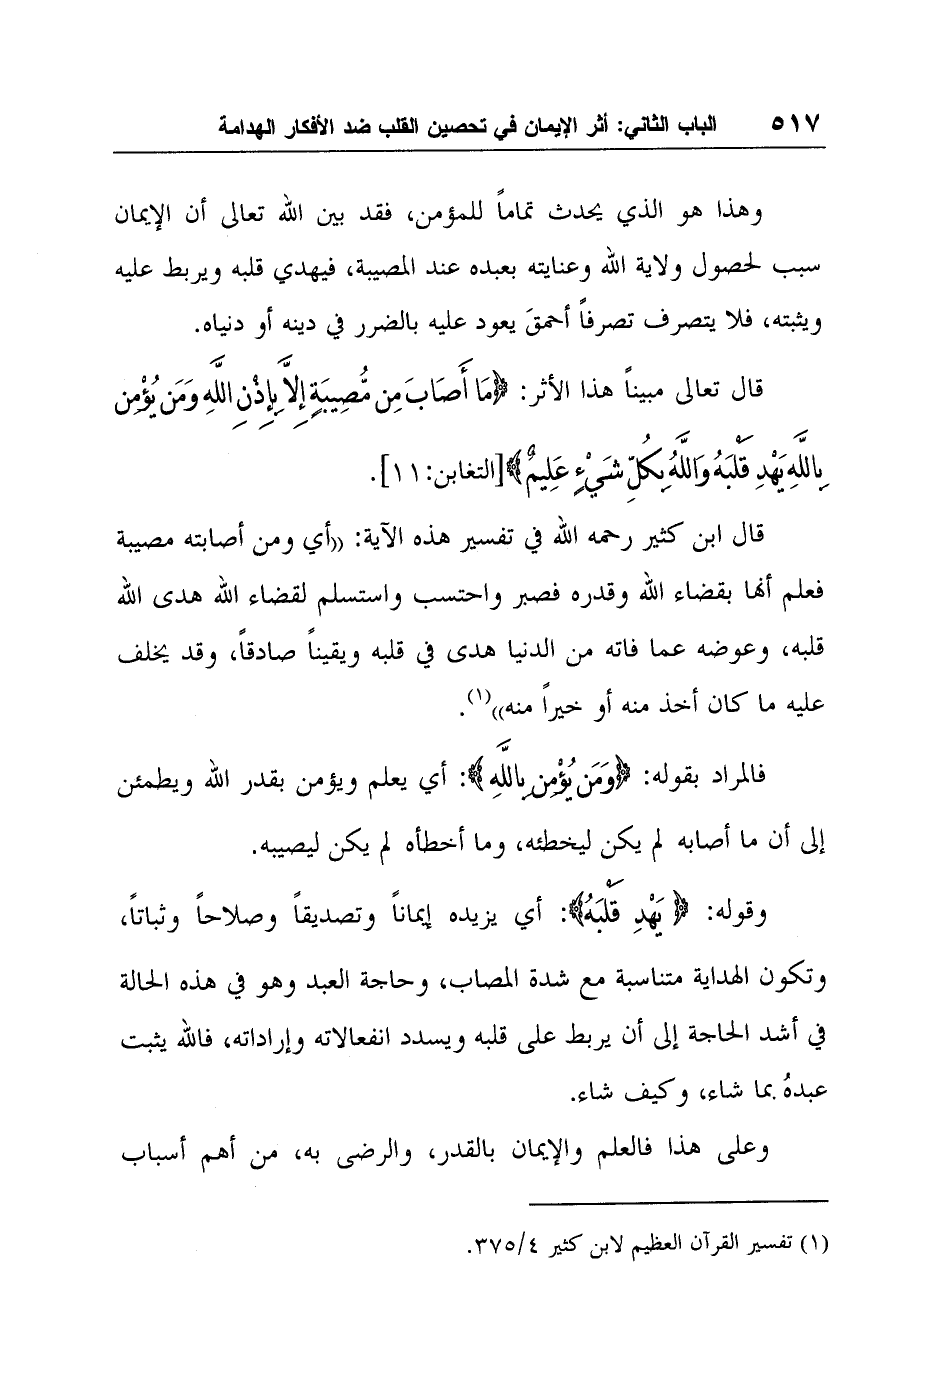 ٥١٧ الباب الثاني: أثر الإيمان في تحصين القلب ضد الأفكار الهدامة
وهذا هو الذي يحدث تماماً للمؤمن، فقد بين الله تعالى أن الإيمان
سبب لحصول ولاية الله وعنايته بعبده عند المصيبة، فيهدي قلبه ويربط عليه
ويثبته، فلا يتصرف تصرفاً أحمقَ يعود عليه بالضرر في دينه أو دنياه.
قال تعالى مبيناً هذا الأثر: ﴿مَا أَصَابَ مِن مُّصِيبَةٍ إِلاَّ بِإِذْنِ اللَّهِ وَمَن يُؤْمِن
بِاللَّهِ يَهْدِ قَلْبَهُ وَاللَّهُ بِكُلِّ شَيْءٍ عَلِيمٌ﴾[التغابن:١١].
قال ابن كثير رحمه الله في تفسير هذه الآية: ((أي ومن أصابته مصيبة
فعلم أنها بقضاء الله وقدره فصبر واحتسب واستسلم لقضاء الله هدى الله
قلبه، وعوضه عما فاته من الدنيا هدى في قلبه ويقيناً صادقاً، وقد يخلف
عليه ما كان أخذ منه أو خيراً منه))(١).
فالمراد بقوله: ﴿وَمَن يُؤْمِن بِاللَّهِ﴾: أي يعلم ويؤمن بقدر الله ويطمئن
إلى أن ما أصابه لم يكن ليخطئه، وما أخطأه لم يكن ليصيبه.
وقوله: ﴿يَهْدِ قَلْبَهُ﴾: أي يزيده إيماناً وتصديقاً وصلاحاً وثباتاً،
وتكون الهداية متناسبة مع شدة المصاب، وحاجة العبد وهو في هذه الحالة
في أشد الحاجة إلى أن يربط على قلبه ويسدد انفعالاته وإراداته، فالله يثبت
عبدهُ بما شاء، وكيف شاء.
وعلى هذا فالعلم والإيمان بالقدر، والرضى به، من أهم أسباب
(١) تفسير القرآن العظيم لابن كثير ٣٧٥/٤.